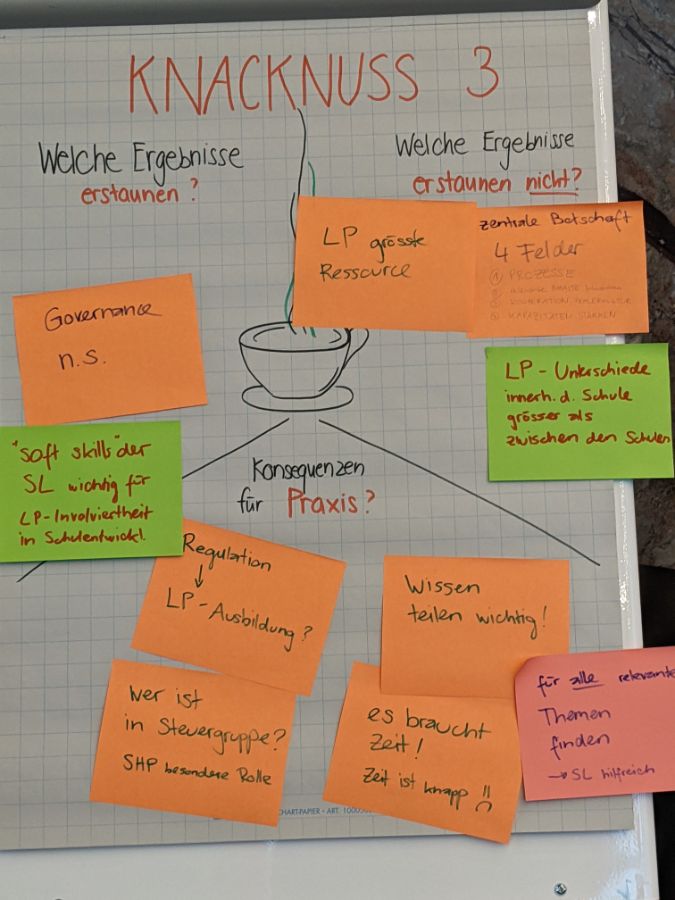 KNACKNUSS 3
Welche Ergebnisse
erstaunen?
Welche Ergebnisse
erstaunen nicht?
LP grösste
Ressource
zentrale Botschaft
4 Felder
① PROZESSE
④ KAPAZITÄTEN STÄRKEN
Governance
n.s.
LP - Unterschiede
innerh. d. Schule
grösser als
zwischen den Schulen
"soft skills" der
SL wichtig für
LP-Involviertheit
in Schulentwickl.
Konsequenzen
für Praxis?
Regulation
↓
LP - Ausbildung?
Wissen
teilen wichtig!
Wer ist
in Steuergruppe?
SHP besondere Rolle
es braucht
Zeit!
Zeit ist knapp !!
für alle relevante
Themen
finden
→ SL hilfreich
CHART-PAPIER - ART.